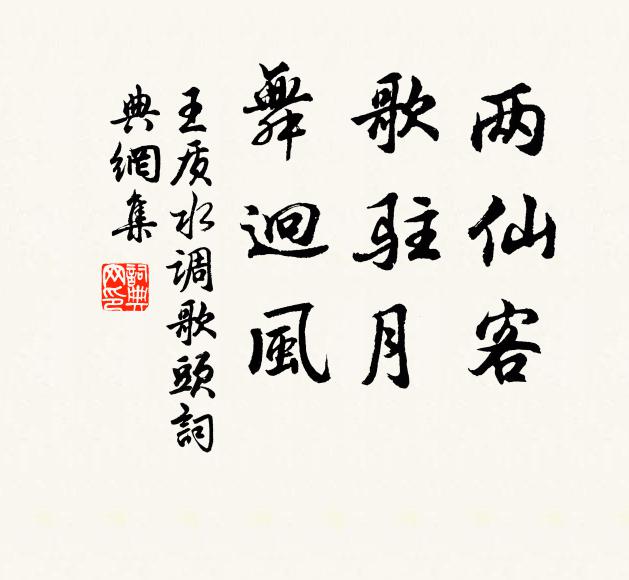 两仙客
歌驻月
舞迴風
王质水调歌頭詞
典網集
詞典
网印